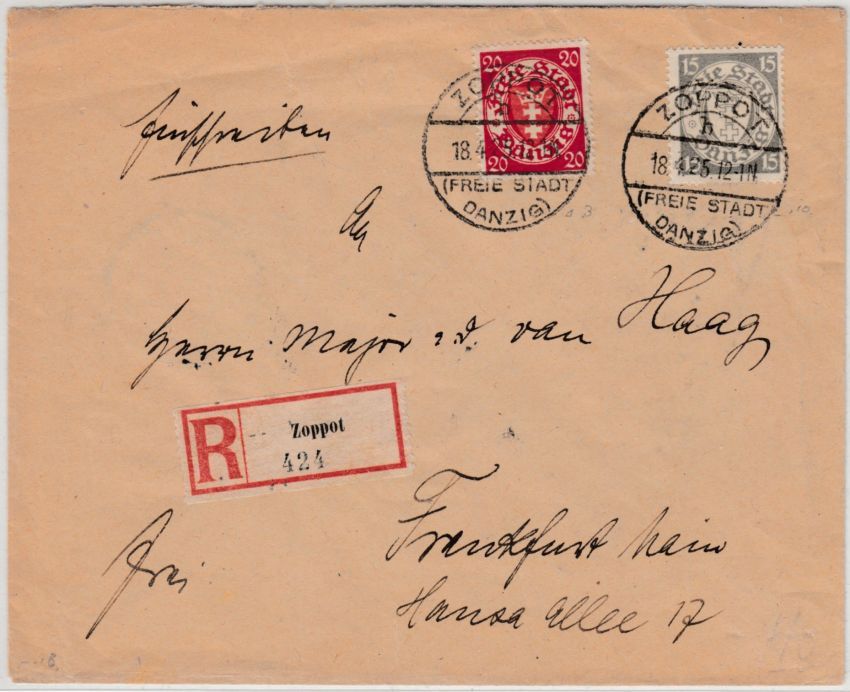 Einschreiben
20 20
Freie Stadt
Danzig
20 20
15 15
Freie Stadt
Danzig
15 15
ZOPPOT
18.4.25.12-1N
(FREIE STADT
DANZIG)
ZOPPOT
h
18.4.25.12-1N
(FREIE STADT
DANZIG)
An
Herrn Major a.d. van Haag
R
Zoppot
424
frei
Frankfurt Main
Hansa Allee 17